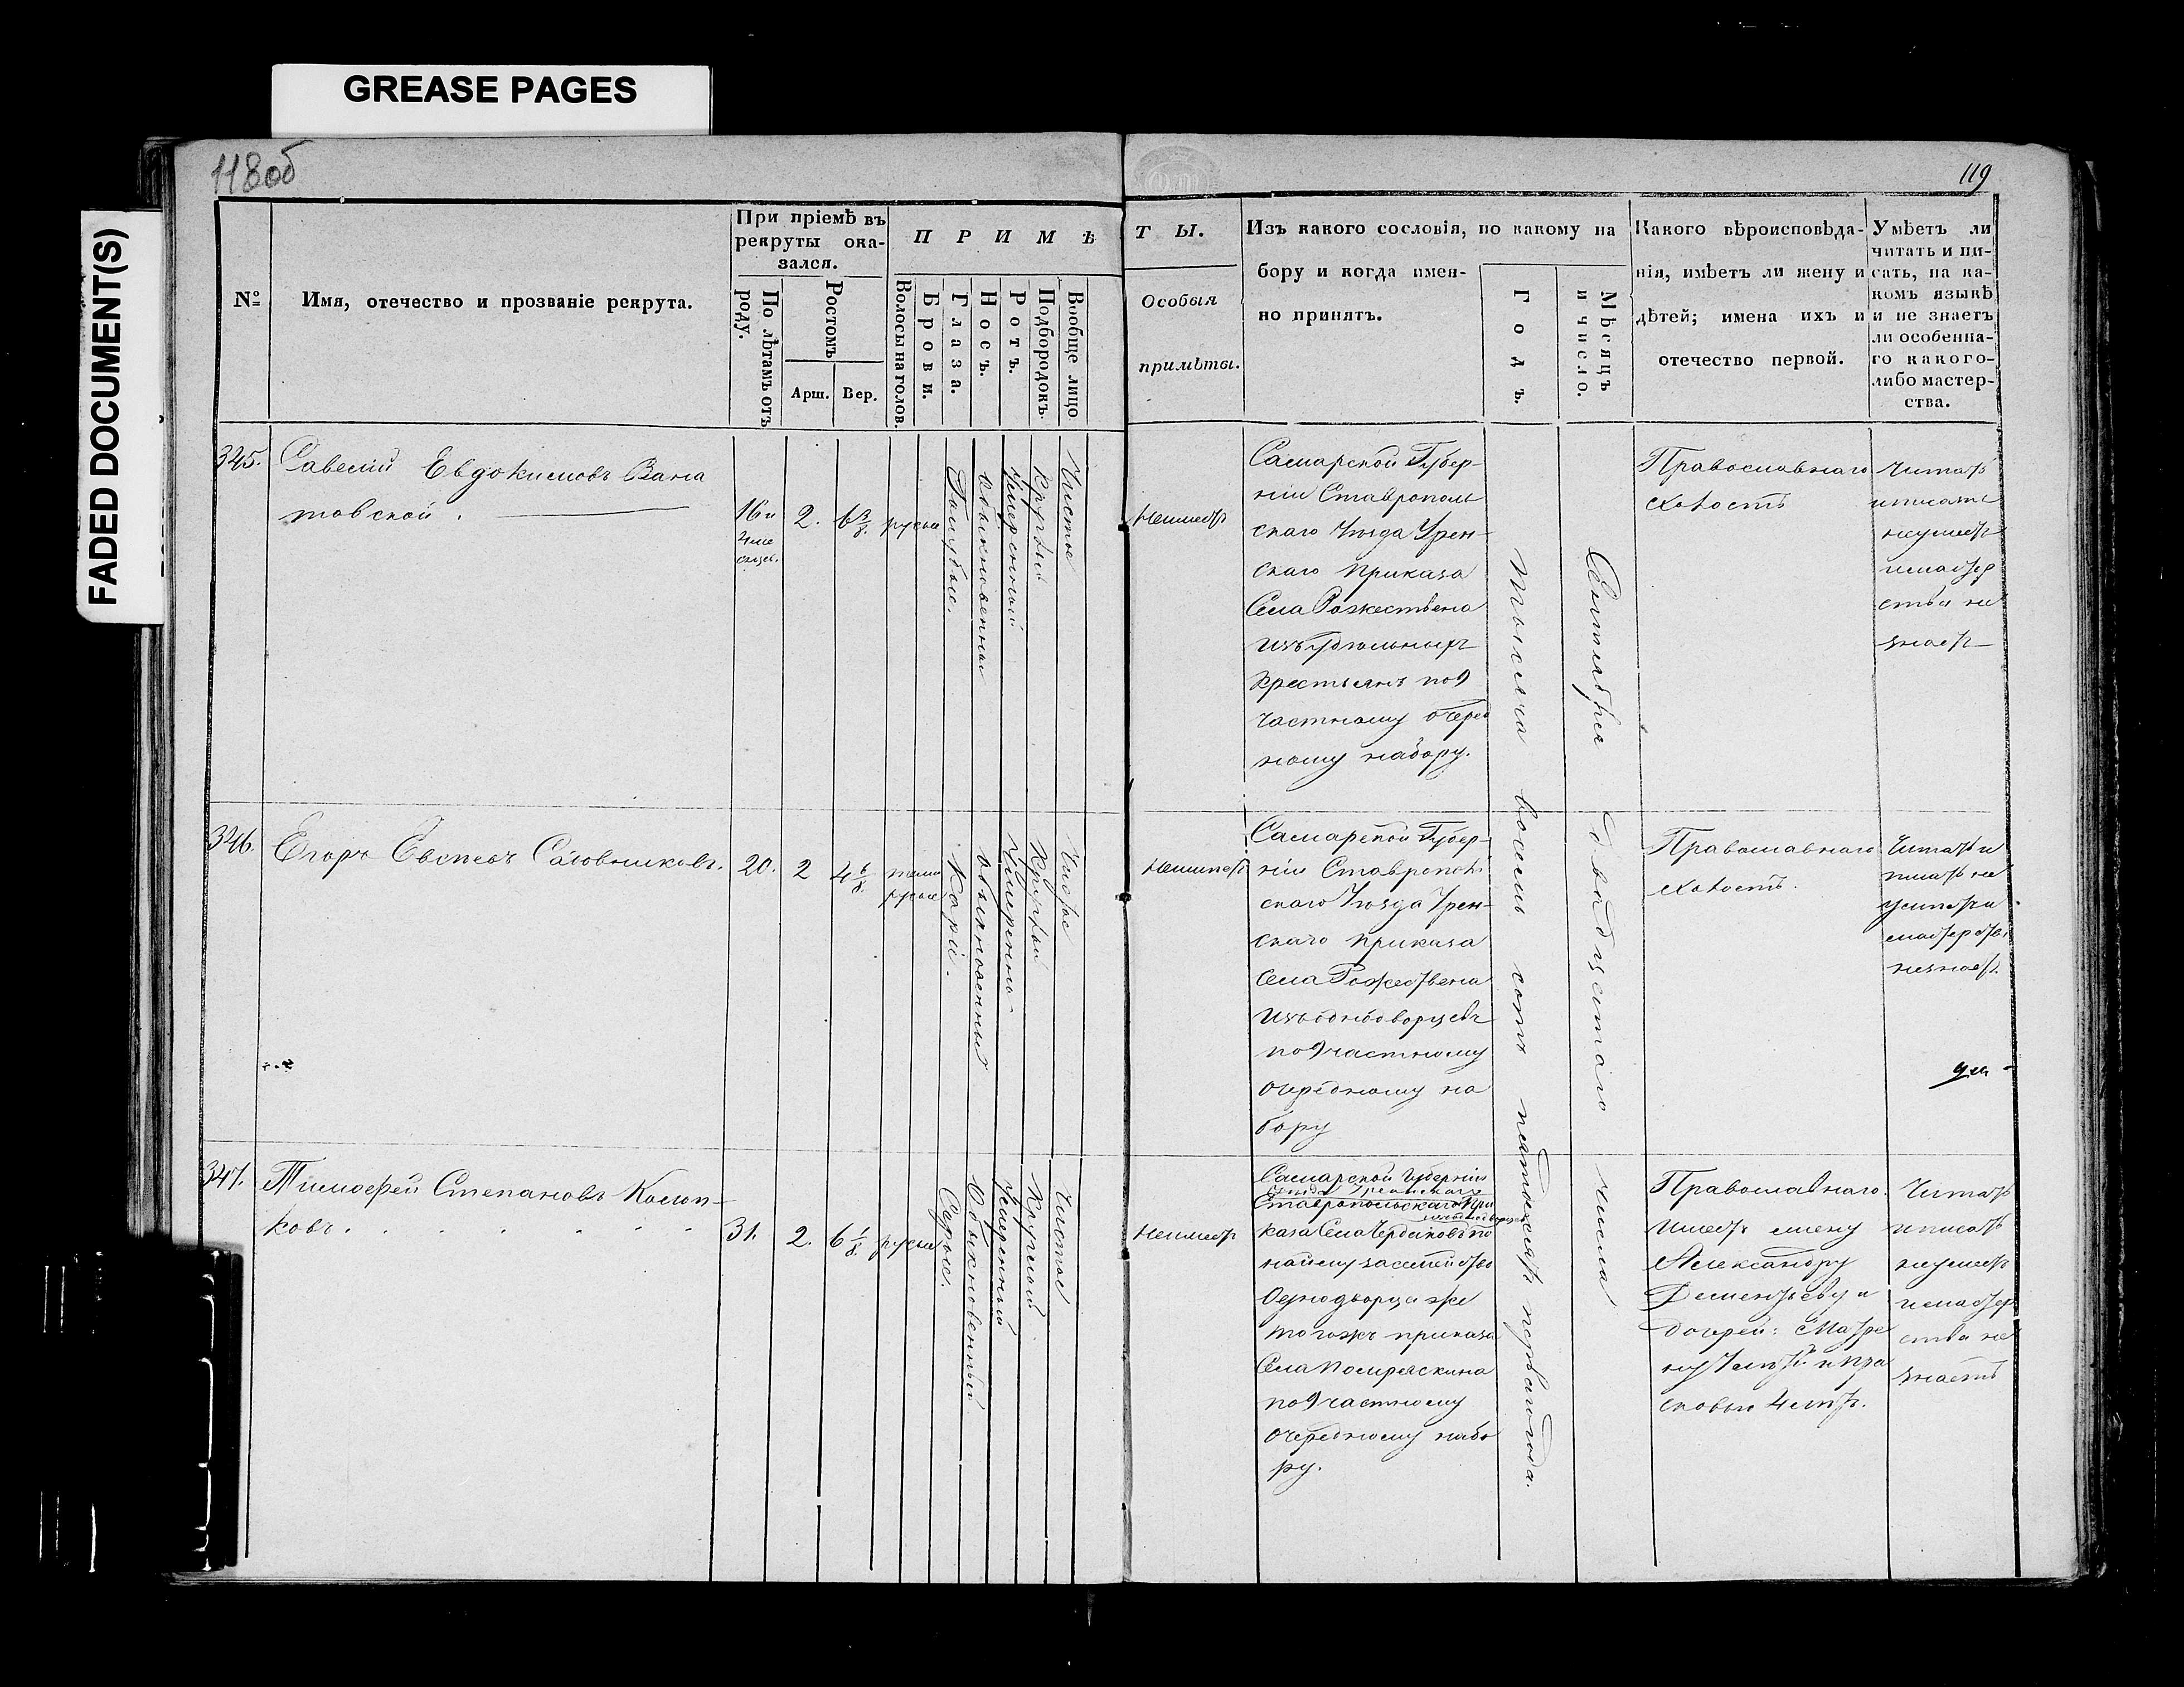 GREASE PAGES
FADED DOCUMENT(S)
118 об
119
№
Имя, отечество и прозваніе рекрута.
При пріемѣ въ
рекруты ока-
зался.
По лѣтамъ отъ
роду.
Ростомъ
Арш.
Вер.
П Р И М Ѣ
Волосы на голов.
Брови.
Глаза.
Носъ.
Ротъ.
Подбородокъ.
Вообще лицо
Т Ы.
Особыя
примѣты.
Изъ какого сословія, по какому на
бору и когда имен-
но принятъ.
Годъ.
Мѣсяцъ
и число.
Какого вѣроисповѣда-
нія, имѣетъ ли жену и
дѣтей; имена ихъ и
отечество первой.
Умѣетъ ли
читать и пи-
сать, на ка-
комъ языкѣ
и не знаетъ
ли особенна-
го какого-
либо мастер-
ства.
345.
Савелій Евдокимовъ
товской.
16 и
4 ме
сяцев.
2.
6 3/8.
русые
Голубые.
Обыкновенные
Умеренный
Круглый
Чистое
Неимеетъ
Самарской Губер-
ніи Ставрополь
скаго Уѣзда Урен-
скаго Приказа
Села Рожествена
изъ удѣльныхъ
Крестьянъ по 9
частному очеред
ному набору.
Тысяча восемь сотъ пятдесятъ перваго года.
Сентября двадцатаго числа
Православнаго
холостъ
Читать
и писать
неумеетъ
и мастер
ства не
знаетъ
346.
Егоръ Евсеевъ
20.
2
4 6/8.
темно
русые
Карій.
Обыкновенный
Умеренно
Круглый
Чистое
Неимеетъ
Самарской Губер-
ніи Ставрополь
скаго Уѣзда Урен-
скаго Приказа
Села Рожествена
Изъ однодворцевъ
по 9 частному
очередному на
бору
Православнаго
холостъ.
Читать и
писать не
умеетъ и
мастерства
незнаетъ.
347.
Тимофей Степановъ
ковъ.
31.
2.
6 1/8.
русые
Серые.
Обыкновенный
Умеренный
Круглый
Чистое
Неимеетъ
Самарской Губерніи
Уезда Уренскаго
Ставропольскаго При
каза Села по
найму за семейство
Однодворца же
тогожъ приказа
Села
по 9 частному
очередному набо
ру.
Православнаго.
Имеетъ жену
Александру
Дементьеву и
дочерей: Матре
ну летъ и Пра
сковью 4 летъ.
Читать
и писать
неумеетъ
и мастер
ства не
знаетъ